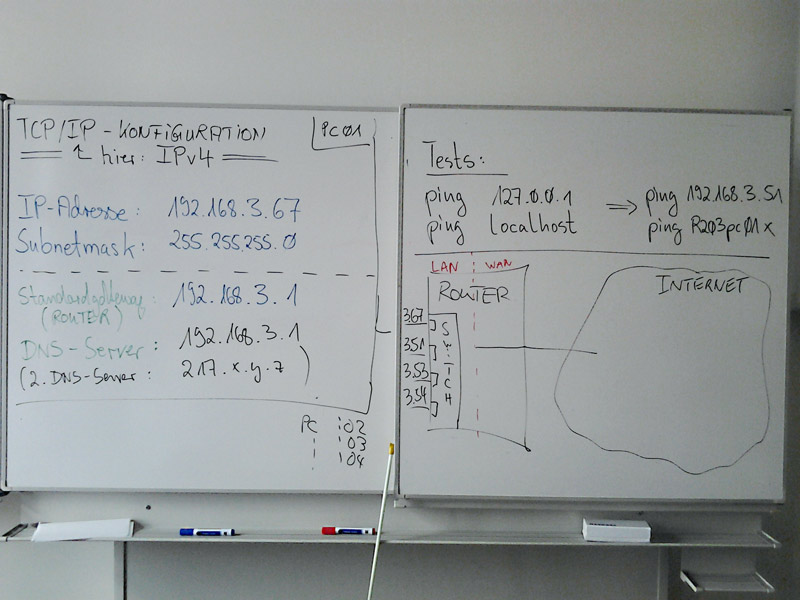 TCP/IP - KONFIGURATION
PC01
hier: IPv4
IP-Adresse: 192.168.3.67
Subnetmask: 255.255.255.0
Standardgateway: 192.168.3.1
(ROUTER)
DNS-Server: 192.168.3.1
(2. DNS-Server: 217.x.y.z)
PC :02
03
04
Tests:
ping 127.0.0.1 => ping 192.168.3.51
ping localhost ping R203pc01x
LAN WAN
ROUTER
INTERNET
3.67
3.51
3.53
3.54
SWITCH